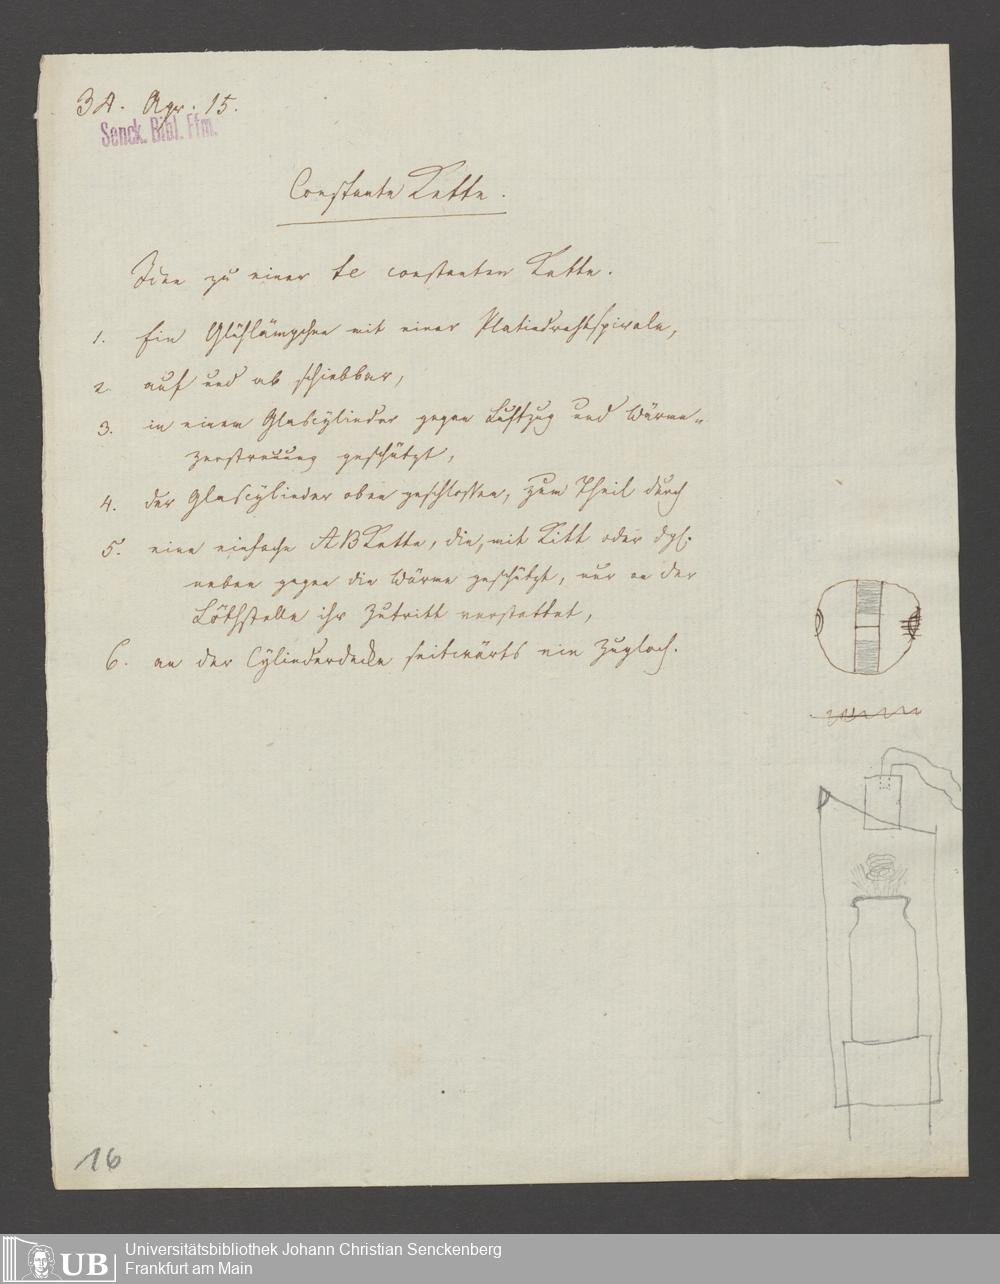 34. Apr. 15.
Senck. Bibl. Ffm.
Constante Kette.
Idee zu einer te constanten Kette.
1. Ein Glühlämpchen mit einer Platindrahtspirale,
2. auf und ab schiebbar,
3. in einem Glascylinder gegen Luftzug und Wärme-
zerstreuung geschützt,
4. der Glascylinder oben geschlossen, zum Theil durch
5. eine einfache AB Kette, die, mit Kitt oder dgl.
neben gegen die Wärme geschützt, nur an der
Löthstelle ihr Zutritt verstattet,
6. an der Cylinderdecke seitwärts ein Zugloch.
16
UB
Universitätsbibliothek Johann Christian Senckenberg
Frankfurt am Main